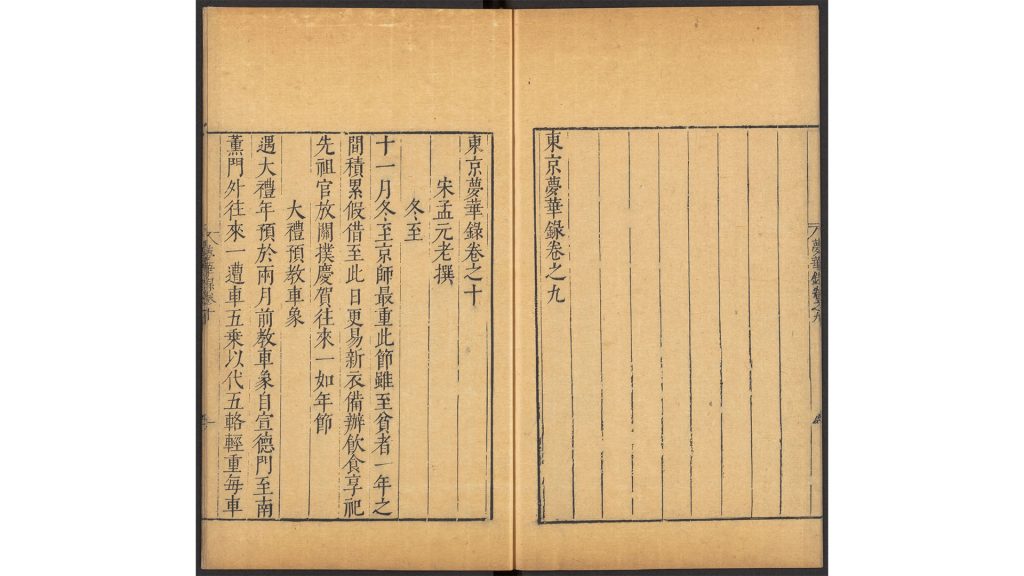 東京夢華錄卷之九
東京夢華錄卷之十
宋孟元老撰
冬至
十一月冬至京師最重此節雖至貧者一年之
間積累假借至此日更易新衣備辦飲食享祀
先祖官放關撲慶賀往來一如年節
大禮預教車象
遇大禮年預於兩月前教車象自宣德門至南
薰門外往來一遭車五乘以代五輅輕重每車